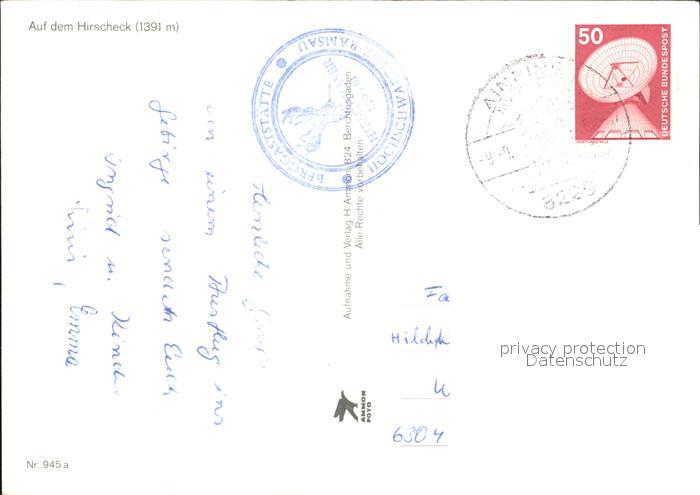 Auf dem Hirscheck (1391 m)
Herzliche Grüße
von einem Ausflug ins
Gebirge senden Euch
Ingrid u. Kinder
BERGGASTSTÄTTE
HOCHSCHWARZECK RAMSAU
Aufnahme und Verlag H. Ammon, 824 Berchtesgaden
Alle Rechte vorbehalten
AMMON
FOTO
50
DEUTSCHE BUNDESPOST
AINRING
8229
Fa
6304
privacy protection
Datenschutz
Nr. 945 a